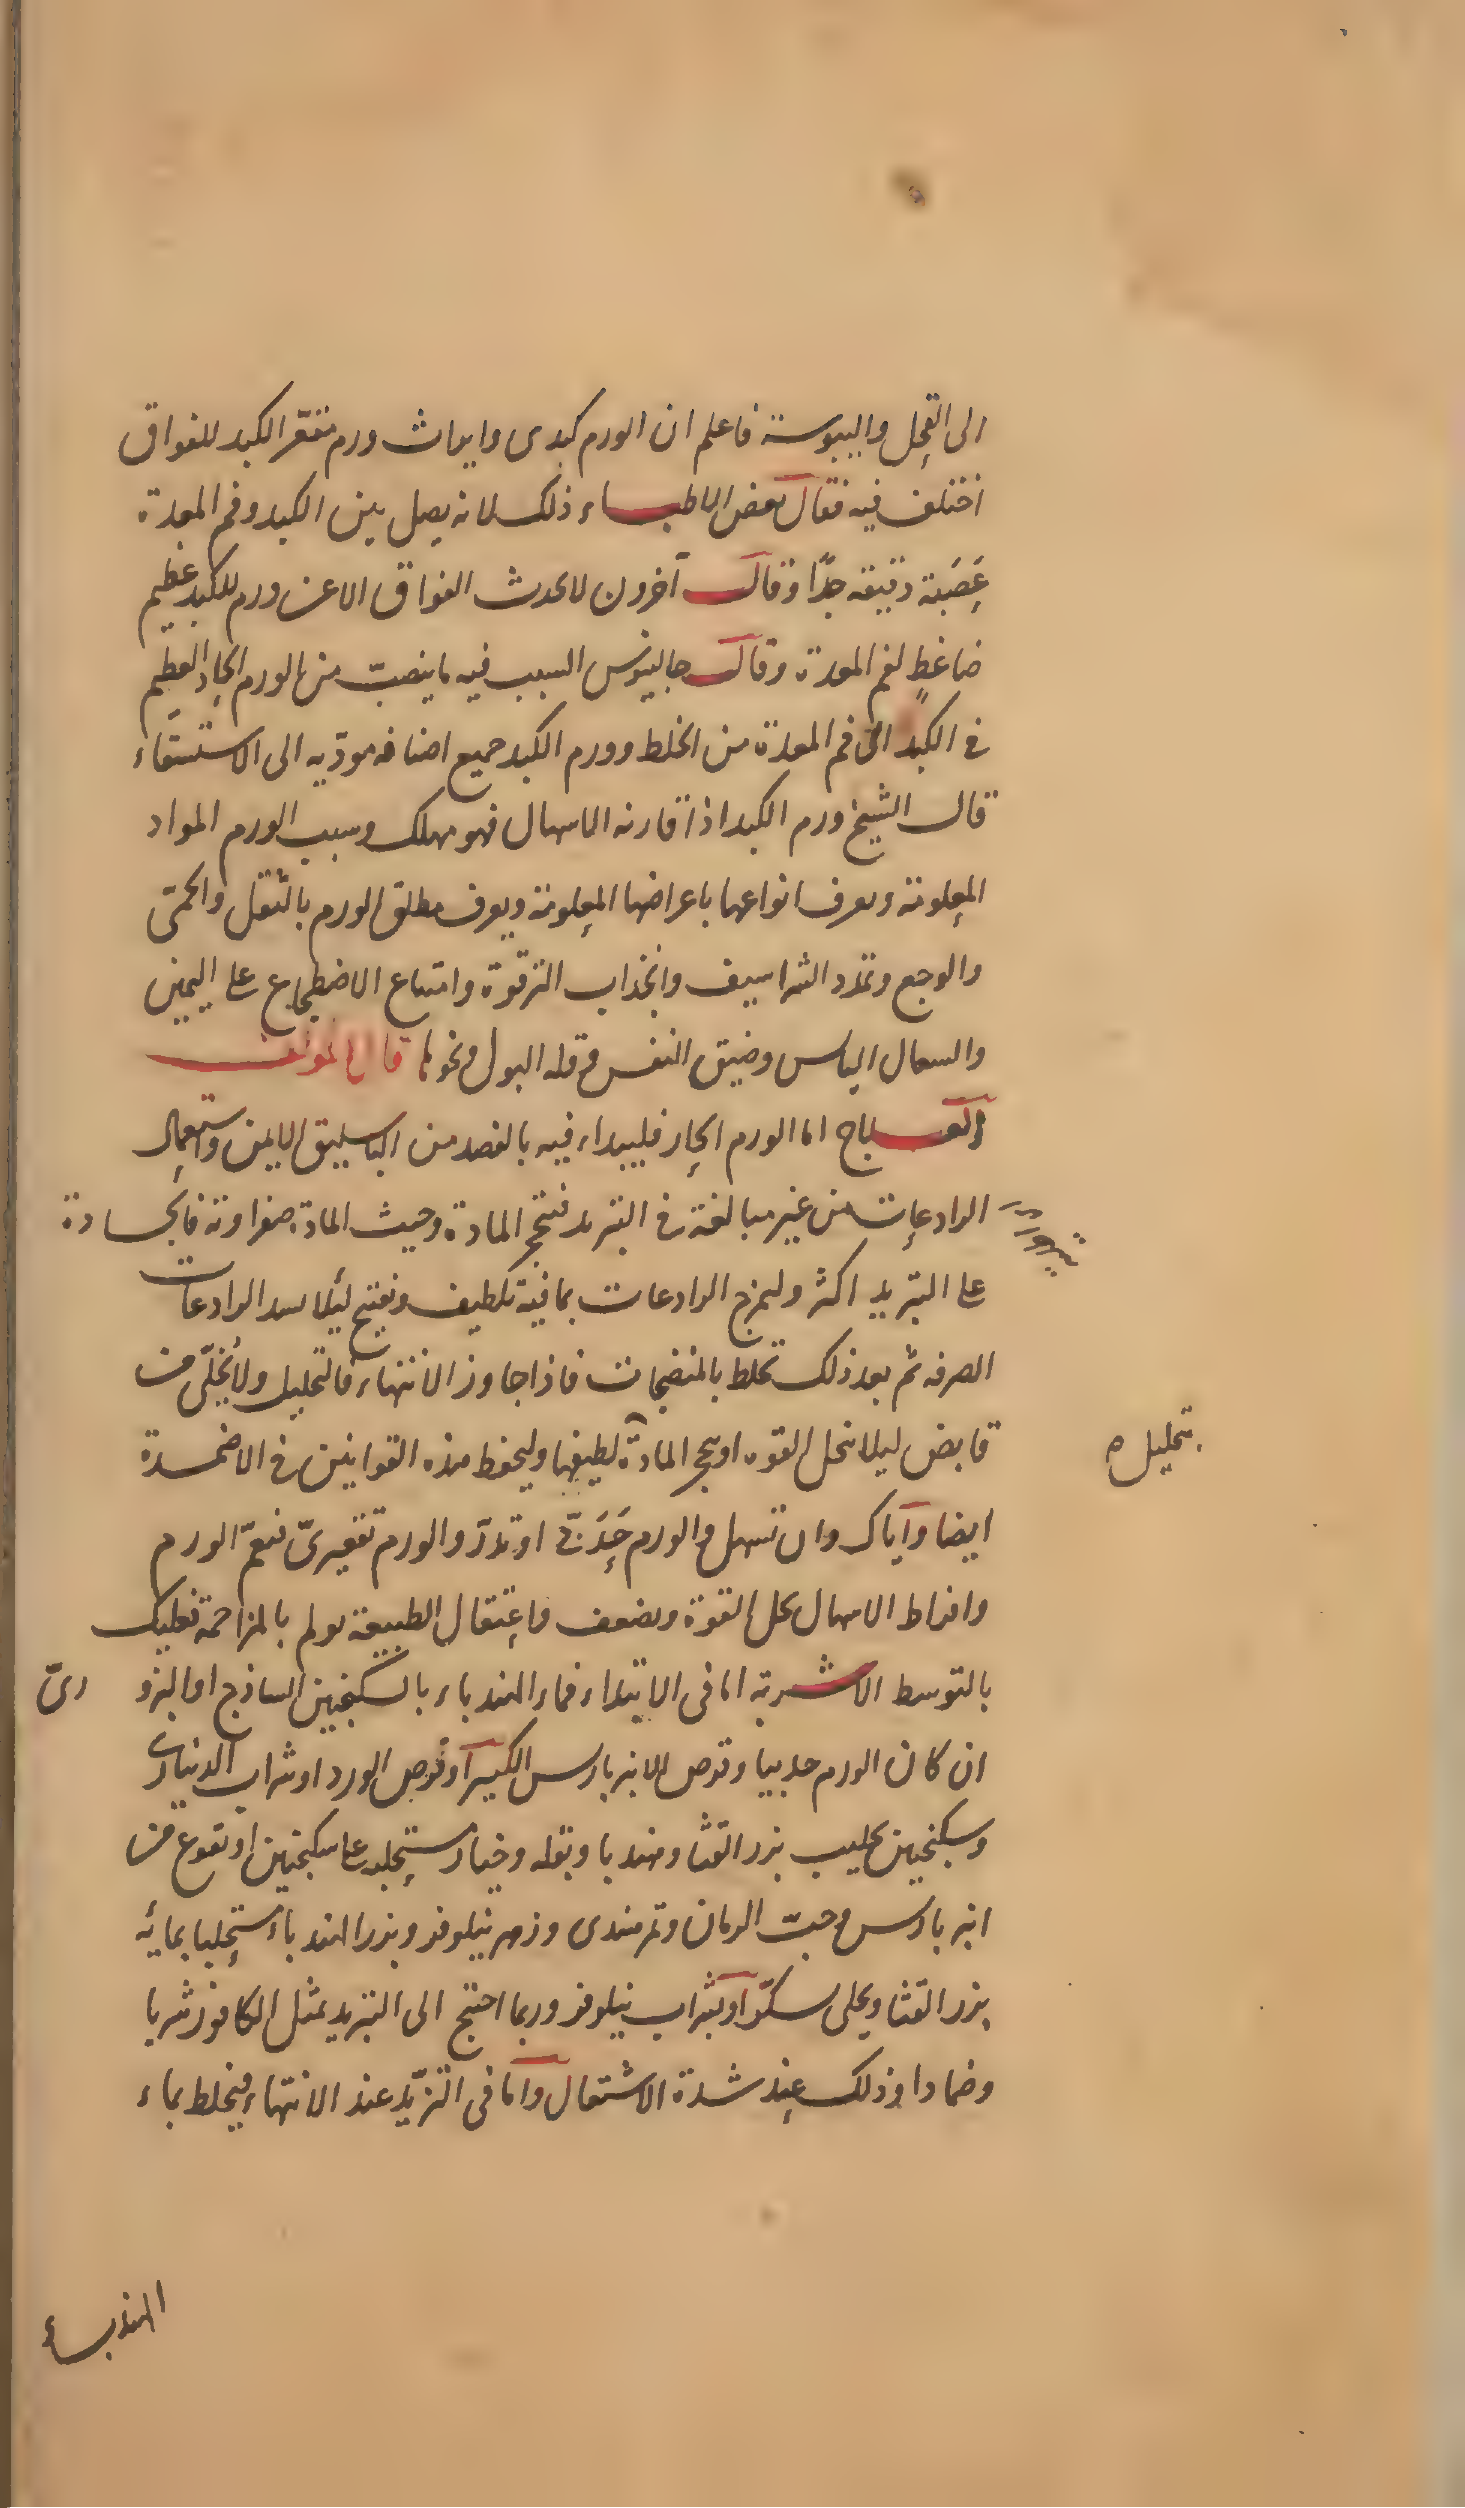 الى القحل واليبوسة فاعلم ان الورم كبدى وايراث ورم مقعّر الكبد للفواق
اختلف فيه فقال بعض الاطباء ذلك لانه يصل بين الكبد وفم المعدة
عَصَبَة دقيقه جدًّا وقال آخرون لا يحدث الفواق الا عن ورم للكبد عظيم
ضاغطٍ لفم المعدة وقال جالينوس السبب فيه ما ينصبّ من الورم الحار العظيم
فى الكبد الى فم المعدة من الخلط وورم الكبد جميع اصنافه مودّيه الى الاستسقاء
قال الشيخ ورم الكبد اذا قارنه الاسهال فهو مهلك وسبب الورم المواد
المعلومة ويعرف انواعها باعراضها المعلومة ويعرف مطلق الورم بالثقل والحمّى
والوجع وتمدد الشراسيف وانجذاب الترقوة وامتناع الاضطجاع على اليمين
والسعال اليابس وضيق النفس وقله البول ونحوها قال المؤلف
العلاج اما الورم الحار فليبداء فيه بالفصد من الباسليق الايمن واستعمال
الرادعات من غير مبالغة فى التبريد فتحجر المادة وحيث المادة صفراوية فالجسارة
على التبريد اكثر وليمزج الرادعات بما فيه تلطيف وتفتيح لئلا يسد الرادعات
الصرفه ثم بعد ذلك تخلط بالمنضجات فاذا جاوز الانتهاء فالتحليل ولا يُخلّى من
قابض ليلا تنحل القوه او يحجر المادة لطيفها وليحفظ هذه القوانين فى الاضمدة
تحليل
ايضا واياك وان تسهل والورم حَدَبىّ او تدرّ والورم تقعيرىّ فيعمّ الورم
وافراط الاسهال يحل القوة ويضعف واعتقال الطبيعة يولم بالمزاحمة فعليك
بالتوسط الاشربة اما فى الابتداء فماء الهندباء بالسكنجبين الساذج او البزورىّ
ان كان الورم حدبيا وقرص الانبرباريس الكبير او قرص الورد او شراب الدينارى
وسكنجبين بحليب بزر القثا وهندبا وبقله وخيار مستحلب على سكنجبين او نقوع من
انبرباريس وحبّ الرمان وتمرهندى وزهر نيلوفر وبزر الهندباء مستحلبا بمائه
بزر القثا ويحلى بسكّر او بشراب نيلوفر وربما احتج الى التبريد بمثل الكافور شربا
وضمادا وذلك عند شدة الاشتعال واما فى التزيّد عند الانتهاء فيخلط بماء
الهندباء